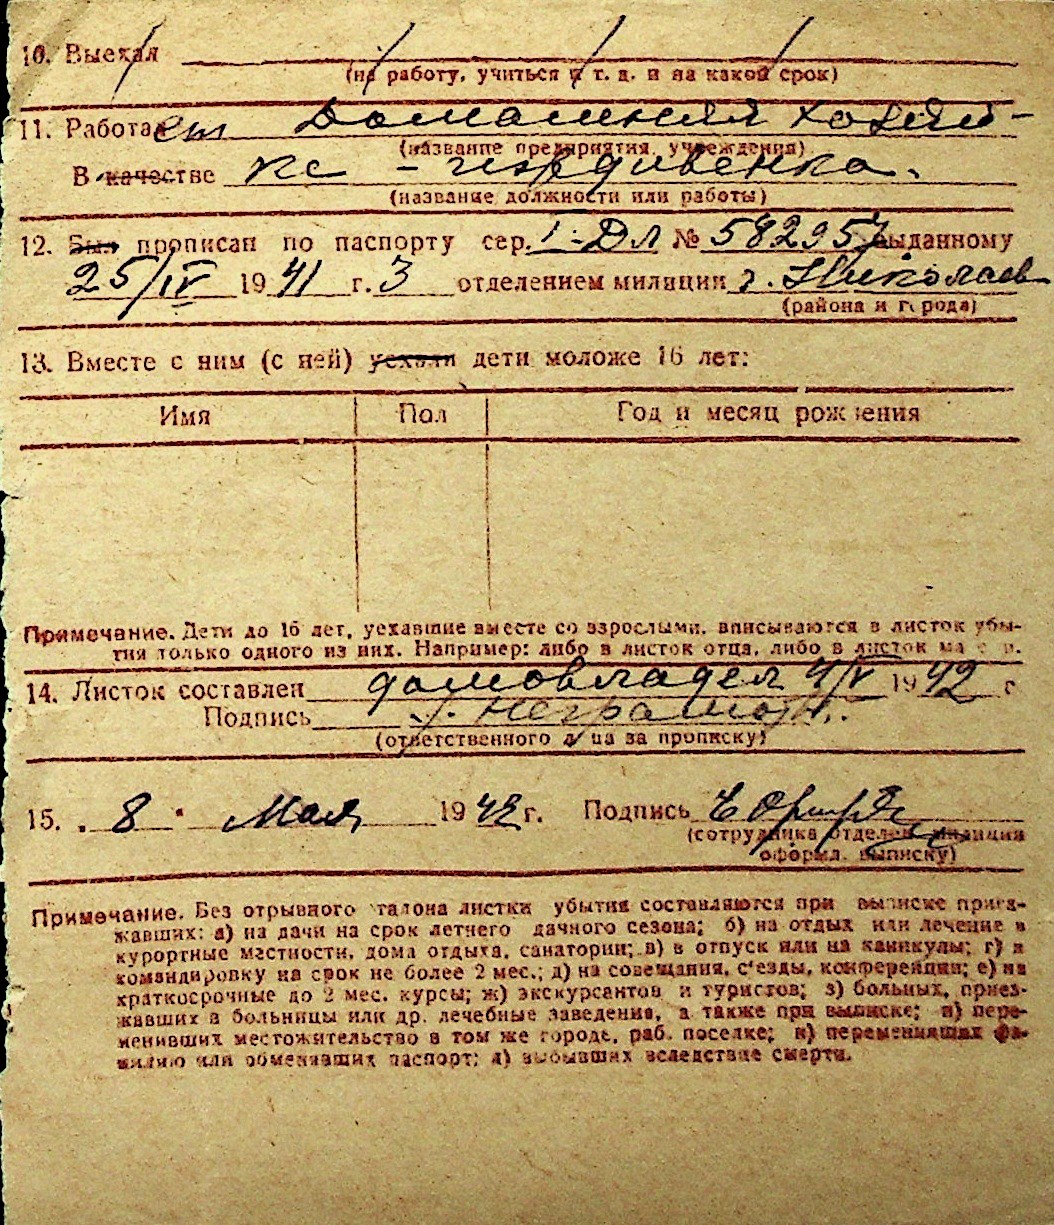 10. Выехал
(на работу, учиться и т. д. и на какой срок)
11. Работает Домашняя хозяй-
(название предприятия, учреждения)
В качестве ка - иждивенка.
(название должности или работы)
12. Был прописан по паспорту сер. I-Дл № 582957 выданному
25/IV 1941 г. 3 отделением милиции г. Николаев
(района и города)
13. Вместе с ним (с ней) уехали дети моложе 16 лет:
Имя Пол Год и месяц рождения
Примечание. Дети до 16 лет, уехавшие вместе со взрослыми, вписываются в листок убы-
тия только одного из них. Например: либо в листок отца, либо в листок ма
14. Листок составлен домовладел 4/V 1942 г
Подпись неграмотн.
(ответственного лица за прописку)
15. 8 Мая 1942 г. Подпись
(сотрудника отделен. милиции
оформл. выписку)
Примечание. Без отрывного талона листки убытия составляются при выписке приез-
жавших: а) на дачи на срок летнего дачного сезона; б) на отдых или лечение в
курортные местности, дома отдыха, санатории; в) в отпуск или на каникулы; г) в
командировку на срок не более 2 мес.; д) на совещания, с'езды, конференции; е) на
краткосрочные до 2 мес. курсы; ж) экскурсантов и туристов; з) больных, приез-
жавших в больницы или др. лечебные заведения, а также при выписке; и) пере-
менивших местожительство в том же городе, раб. поселке; к) переменивших фа-
милию или обменявших паспорт; л) выбывших вследствие смерти.